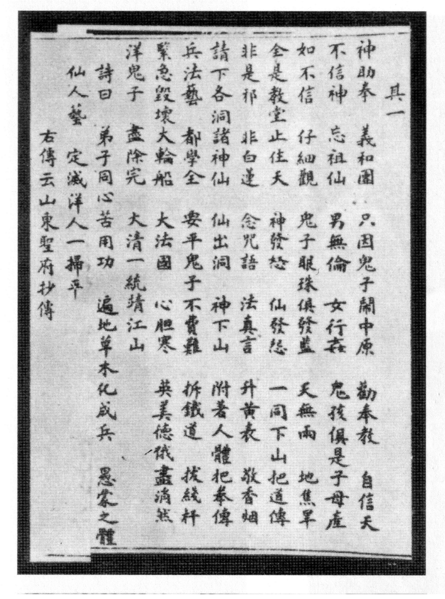 其一
神助拳 義和團 只因鬼子鬧中原 勸奉教 自信天
不信神 忘祖仙 男無倫 女行姦 鬼孩俱是子母產
如不信 仔細觀 鬼子眼珠俱發藍 天無雨 地焦旱
全是教堂止住天 神發怒 仙發怨 一同下山把道傳
非是邪 非白蓮 念咒語 法真言 升黃表 敬香烟
請下各洞諸神仙 仙出洞 神下山 附着人體把拳傳
兵法藝 都學全 要平鬼子不費難 拆鐵道 拔綫杆
緊急毀壞大輪船 大法國 心胆寒 英美德俄盡消然
洋鬼子 盡除完 大清一統靖江山
詩曰 弟子同心苦用功 遍地草木化成兵 愚蒙之體
仙人藝 定滅洋人一掃平
右傳云山東聖府抄傳